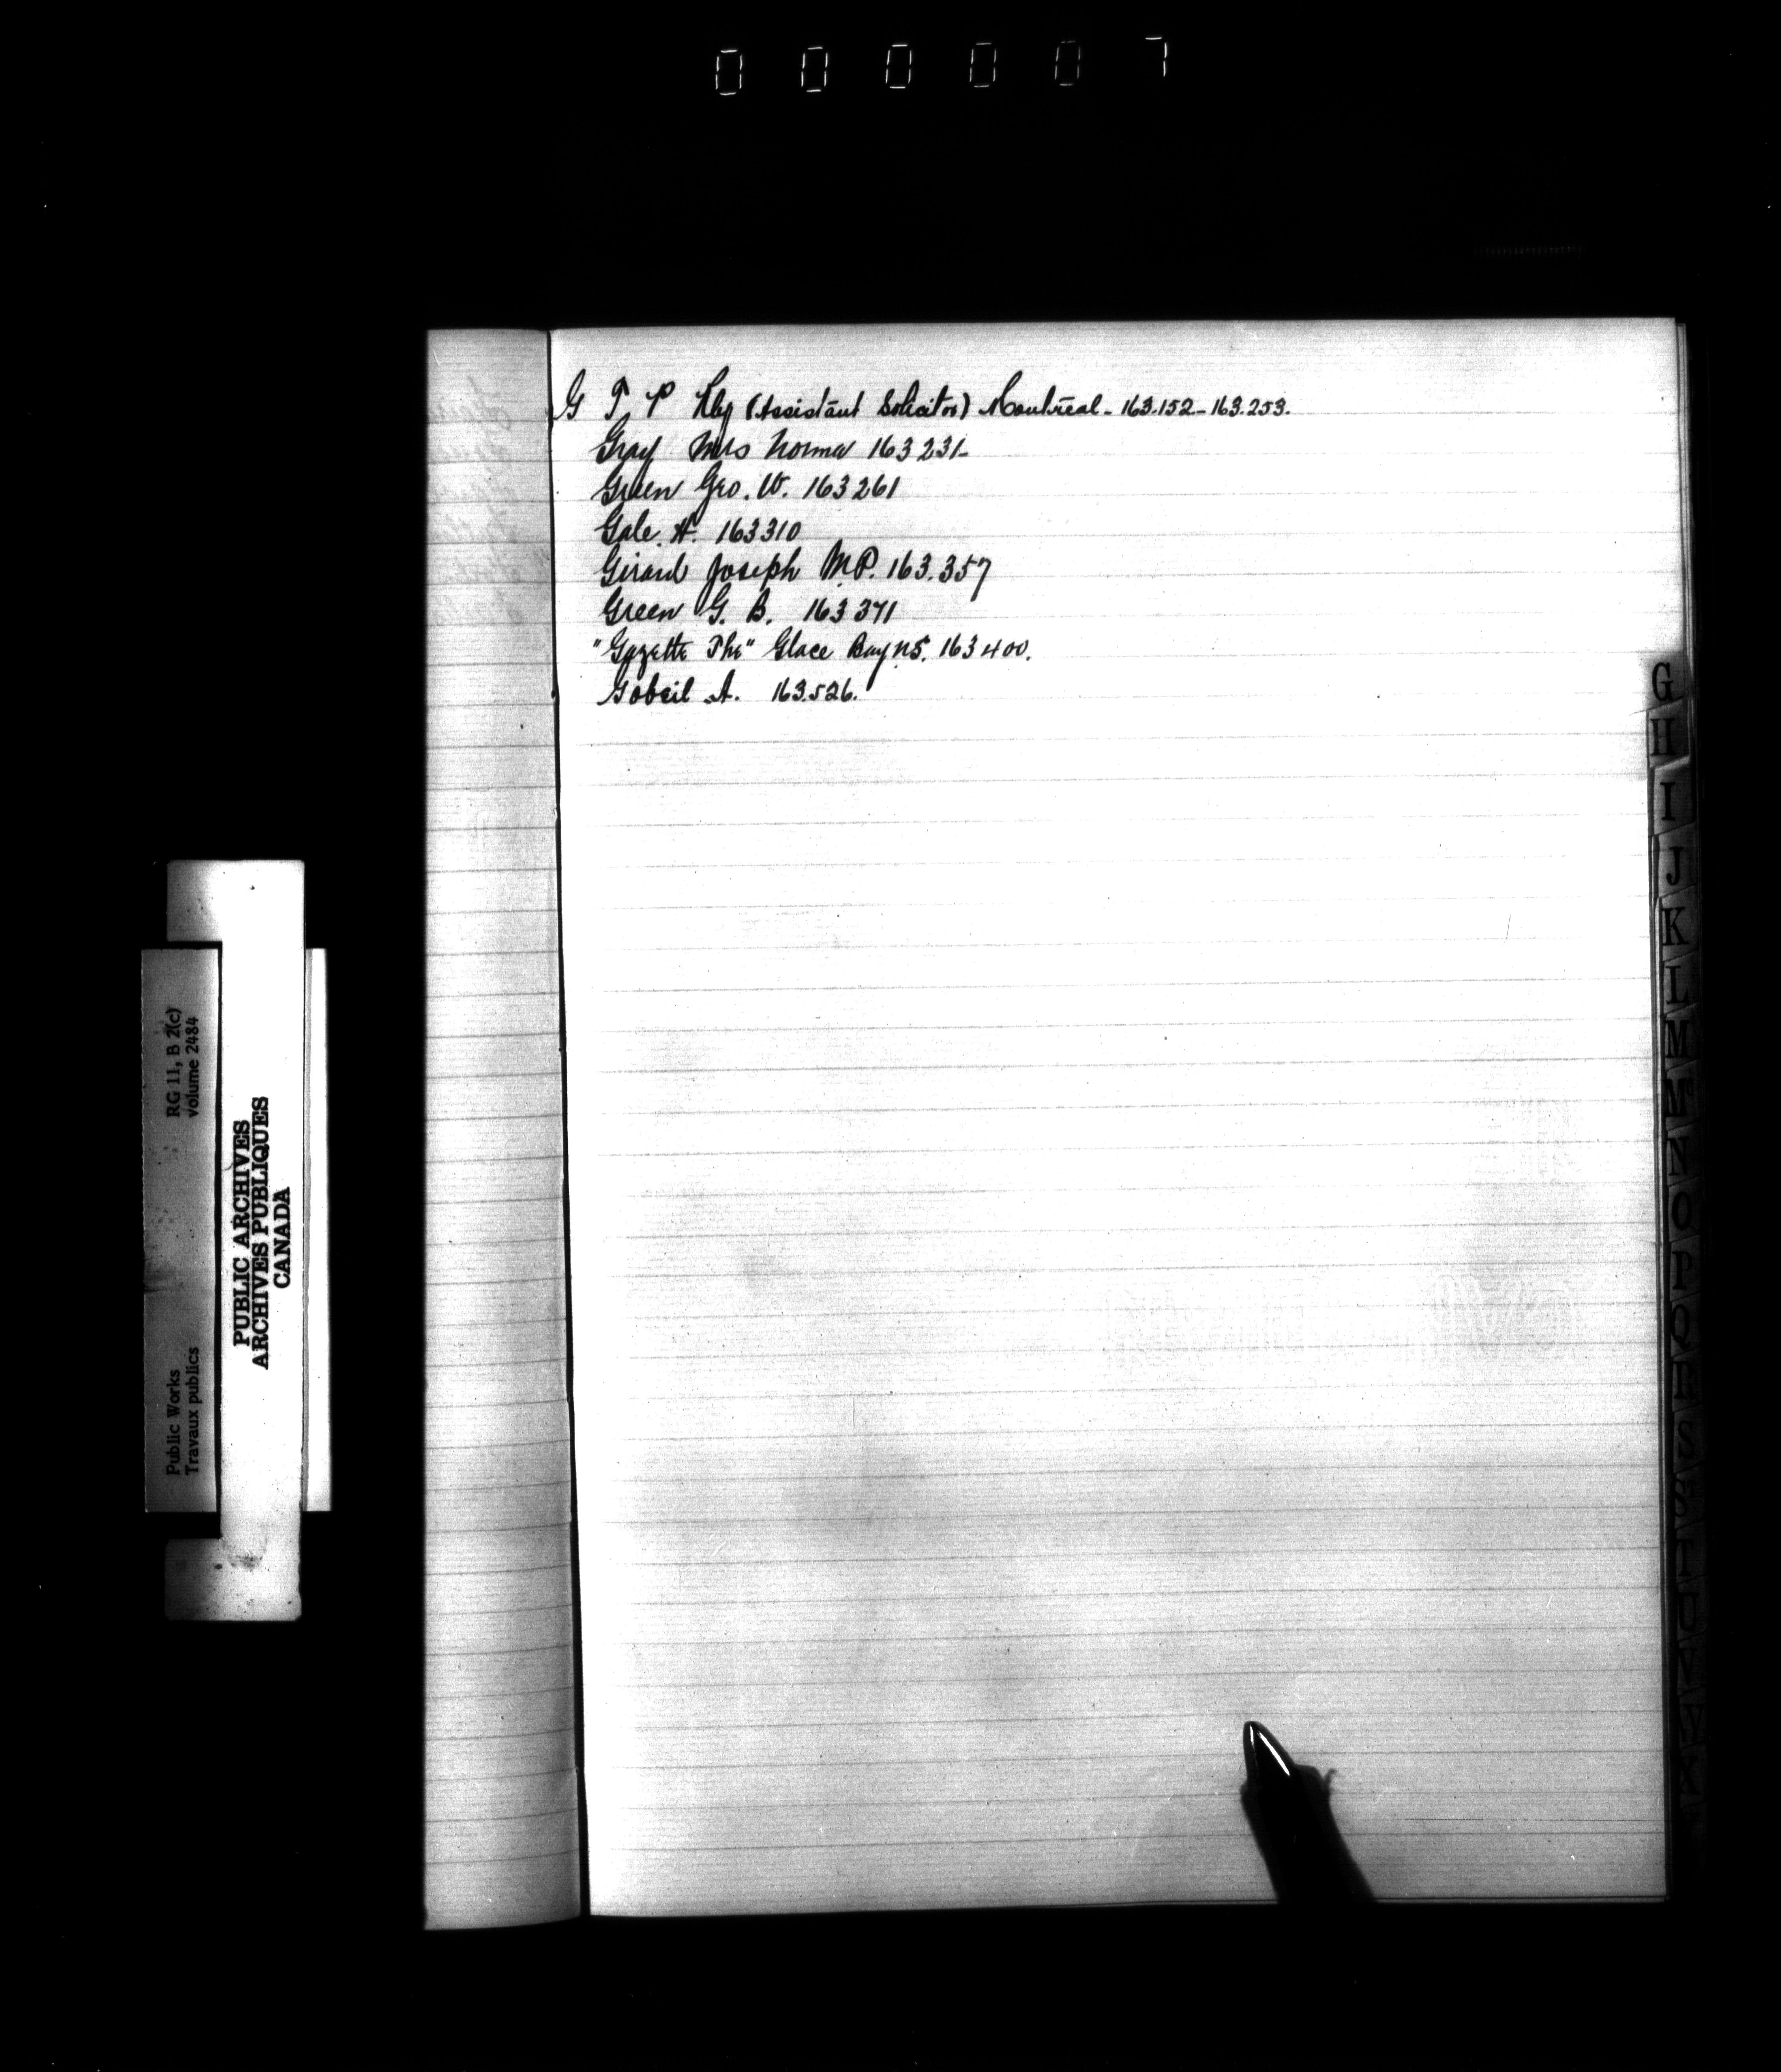 000007
G. T. P Rly (Assistant Solicitor) Montreal - 163.152 - 163.253.
Gray Mrs Norma 163231-
Green Geo. W. 163261
Gale. H. 163310
Girard Joseph M.P. 163.357
Green G. B. 163371
"Gazette The" Glace Bay N.S. 163400.
Gobeil A. 163.526.
G
H
I
J
K
L
M
Mc
N
O
P
Q
R
S
S
T
U
V
W
X
RG 11, B 2(c)
volume 2484
Public Works
Travaux publics
PUBLIC ARCHIVES
ARCHIVES PUBLIQUES
CANADA